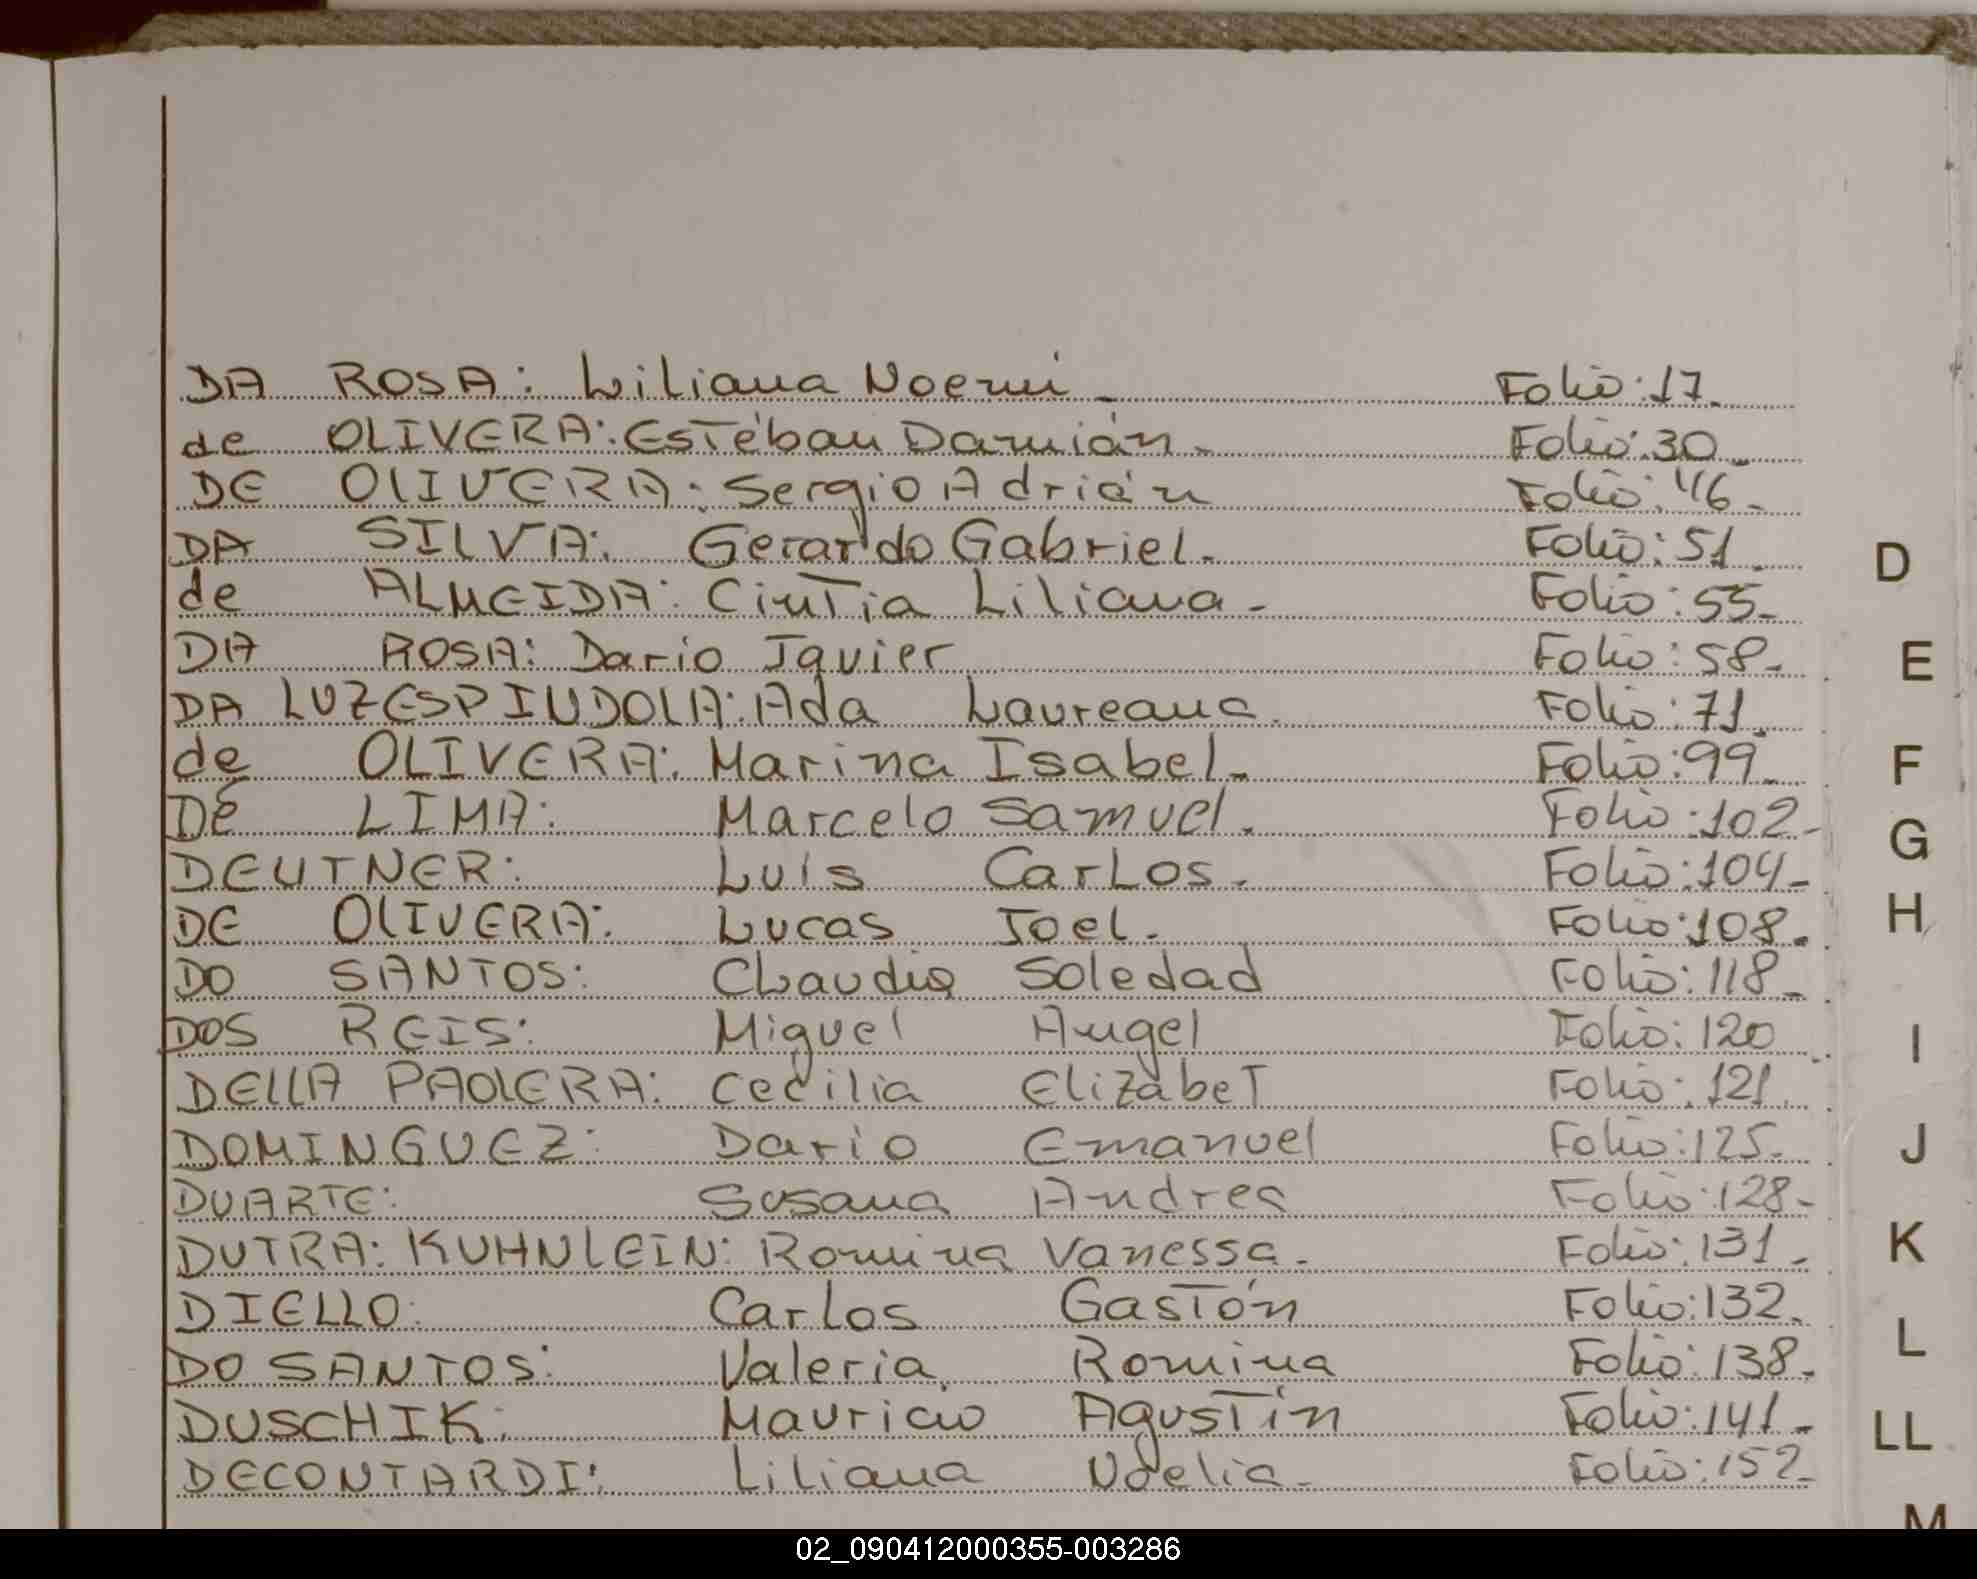 DA ROSA: Liliana Noemi. Folio: 17.
de OLIVERA: Estéban Damián. Folio: 30
DE OLIVERA: Sergio Adrián Folio: 46.
DA SILVA: Gerardo Gabriel. Folio: 51.
de ALMEIDA: Cintia Liliana. Folio: 55.
DA ROSA: Dario Javier Folio: 58.
DA LUZ ESPINDOLA: Ada Laureana. Folio: 71.
de OLIVERA: Marina Isabel. Folio: 99.
DE LIMA: Marcelo Samuel. Folio: 102.
DEUTNER: Luis Carlos. Folio: 104.
DE OLIVERA: Lucas Joel. Folio: 108.
DO SANTOS: Claudia Soledad Folio: 118.
DOS REIS: Miguel Angel Folio: 120
DELLA PAOLERA: Cecilia Elizabet Folio: 121.
DOMINGUEZ: Dario Emanuel Folio: 125.
DUARTE: Susana Andrea Folio: 128.
DUTRA: KUHNLEIN: Romina Vanessa. Folio: 131.
DIELLO: Carlos Gastón Folio: 132.
DO SANTOS: Valeria Romina Folio: 138.
DUSCHIK: Mauricio Agustín Folio: 141.
DECONTARDI: Liliana Noelia. Folio: 152.
D
E
F
G
H
I
J
K
L
LL
M
02_090412000355-003286